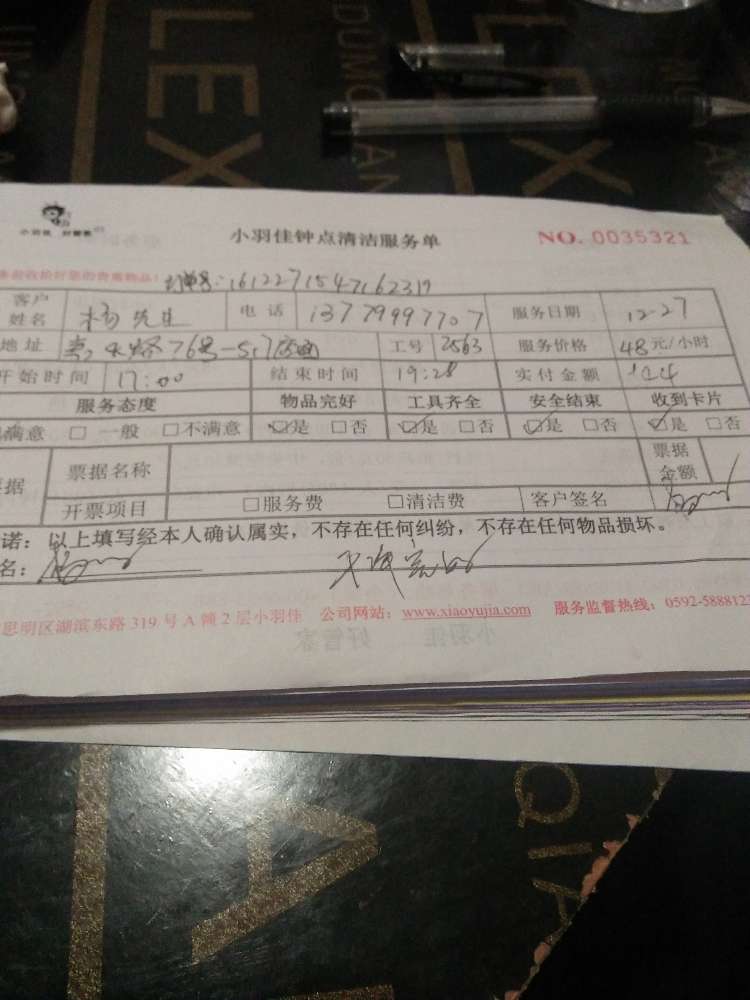 LEX
小羽佳 好管家
小羽佳钟点清洁服务单 NO. 0035321
您的贵重物品! 订单号:1612271547162319
客户姓名 杨先生 电话 13779997707 服务日期 12-27
地址 76号 工号 2563 服务价格 48元/小时
开始时间 17:00 结束时间 19:28 实付金额
服务态度 物品完好 工具齐全 安全结束 收到卡片
满意 □ 一般 □不满意 ☑是 □否 ☑是 □否 ☑是 □否 ☑是 □否
据 票据名称 票据金额
开票项目 □服务费 □清洁费 客户签名
诺:以上填写经本人确认属实,不存在任何纠纷,不存在任何物品损坏。
名:
思明区湖滨东路 319 号 A 幢 2 层小羽佳 公司网站:www.xiaoyujia.com 服务监督热线:0592-588812